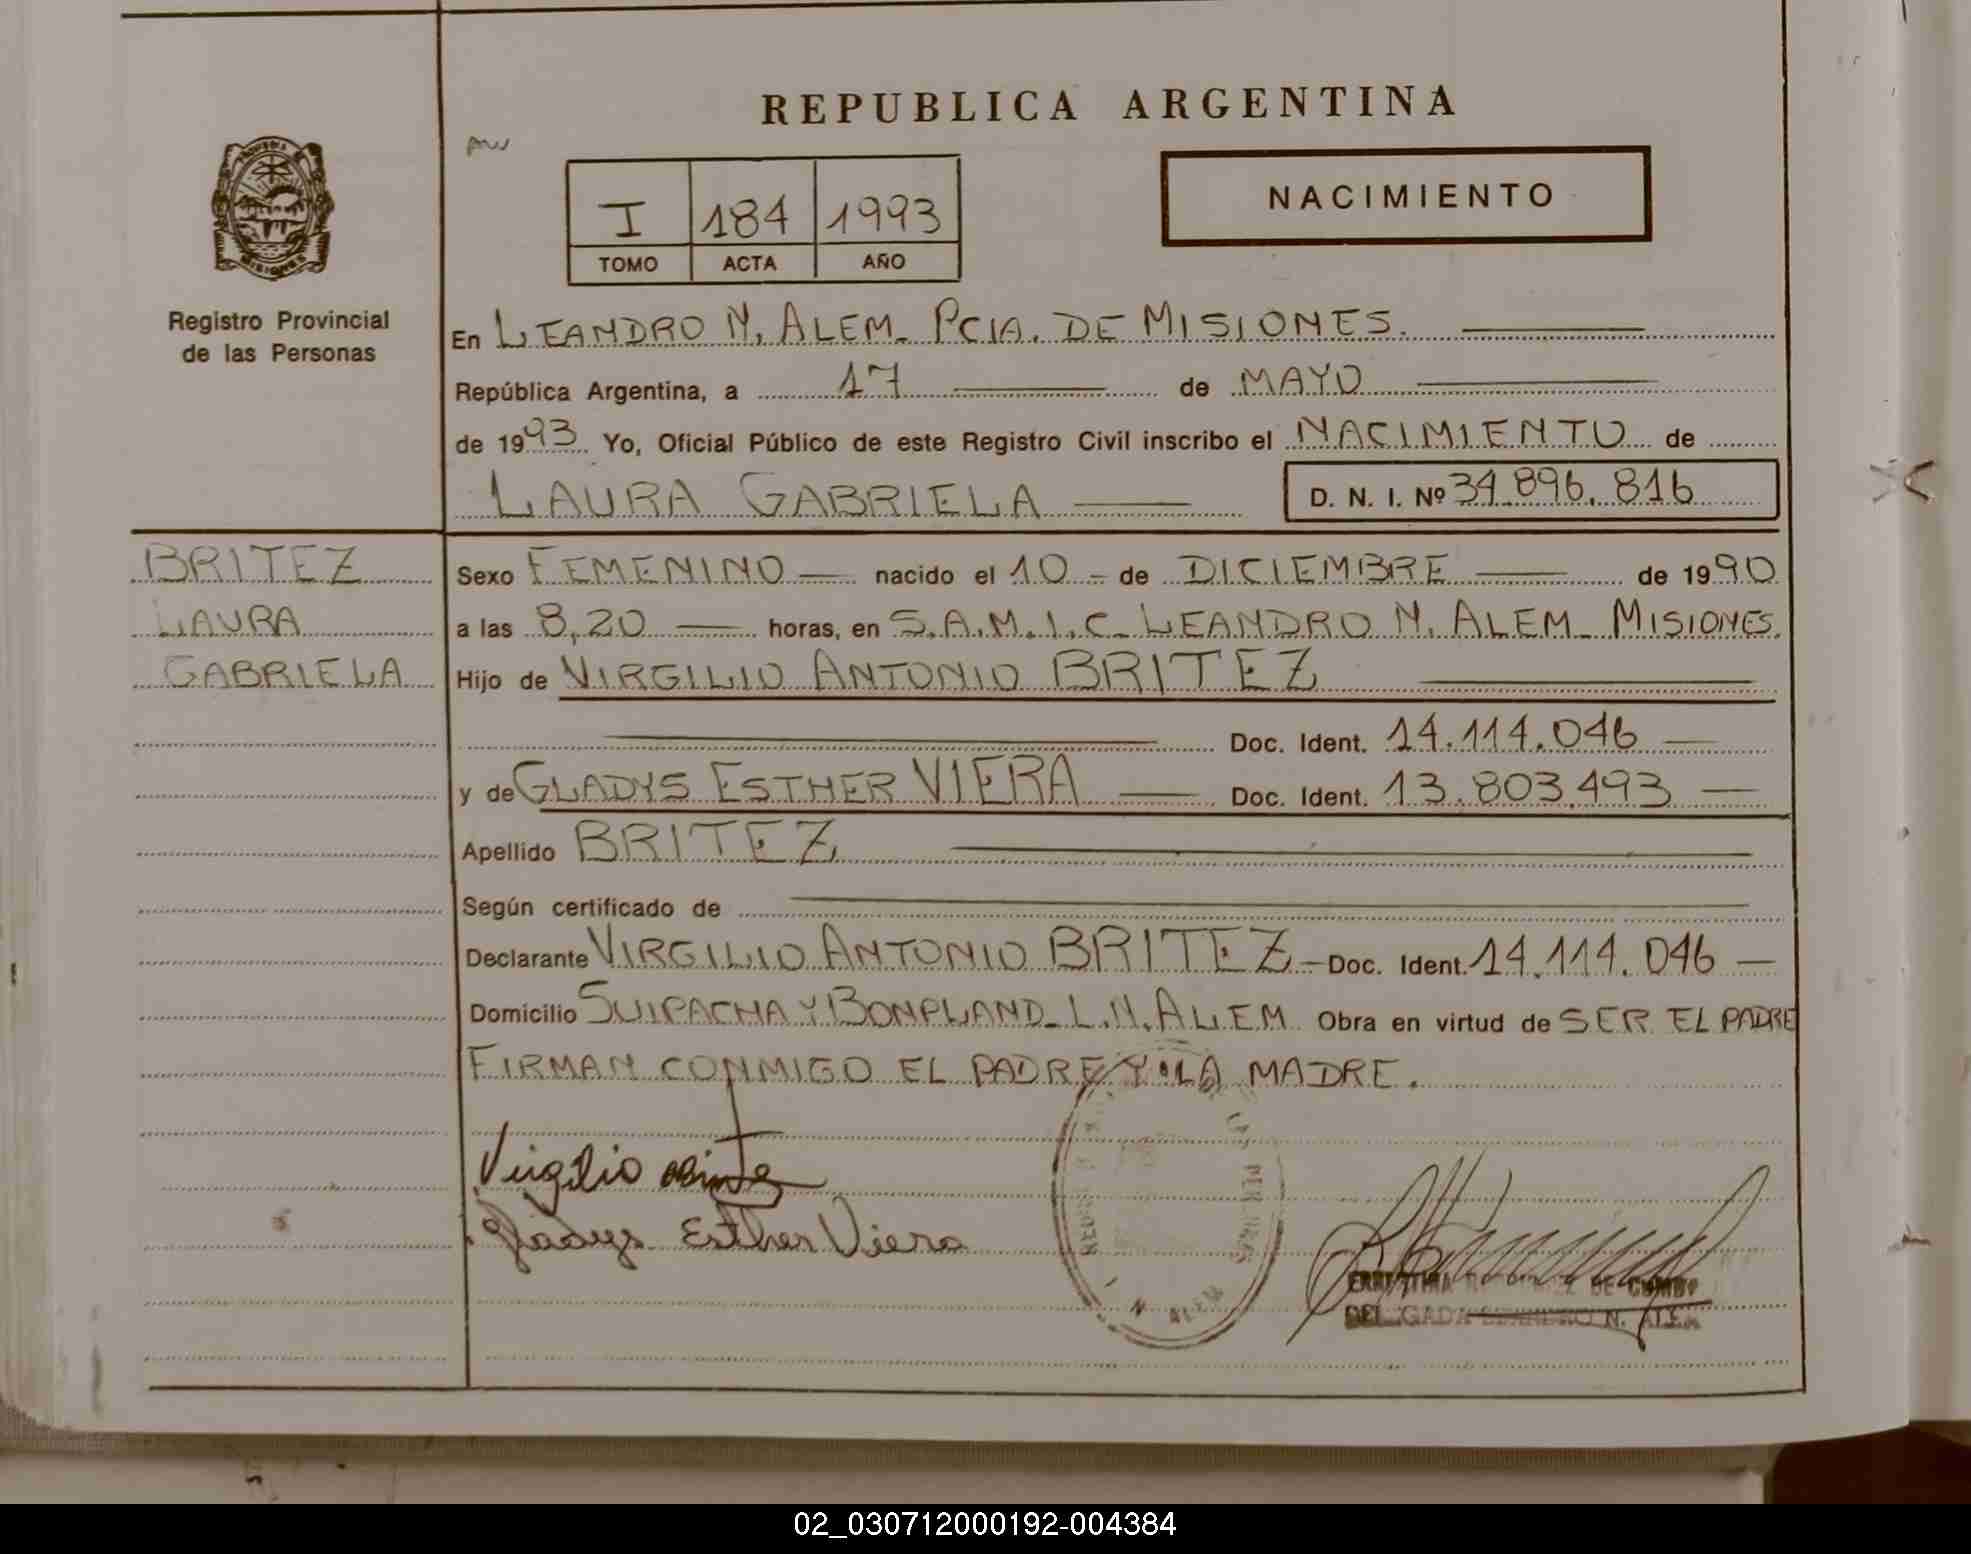 REPUBLICA ARGENTINA
NACIMIENTO
I 184 1993
TOMO ACTA AÑO
PROVINCIA DE
MISIONES
Registro Provincial
de las Personas
En LEANDRO N. ALEM. PCIA. DE MISIONES.
República Argentina, a 17 de MAYO
de 1993 Yo, Oficial Público de este Registro Civil inscribo el NACIMIENTO de
LAURA GABRIELA D. N. I. Nº 34.896.816
BRITEZ
LAURA
GABRIELA
Sexo FEMENINO nacido el 10 de DICIEMBRE de 1990
a las 8,20 horas, en S.A.M.I.C. LEANDRO N. ALEM MISIONES.
Hijo de VIRGILIO ANTONIO BRITEZ
Doc. Ident. 14.114.046
y de GLADYS ESTHER VIERA Doc. Ident. 13.803.493
Apellido BRITEZ
Según certificado de
Declarante VIRGILIO ANTONIO BRITEZ - Doc. Ident. 14.114.046
Domicilio SUIPACHA Y BONPLAND. L.N. ALEM Obra en virtud de SER EL PADRE
FIRMAN CONMIGO EL PADRE Y LA MADRE.
Virgilio
Gladys Esther Viera
N. ALEM
DE
N. ALEM
02_030712000192-004384